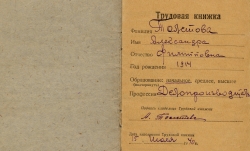 Трудовая книжка
Фамилия Толстова
Имя Александра
Отчество Филипповна
Год рождения 1914
Образование: начальное, среднее, высшее
Профессия Делопроизводитель
Подпись владельца Трудовой книжки
А. Толстова
Дата заполнения Трудовой книжки
июля